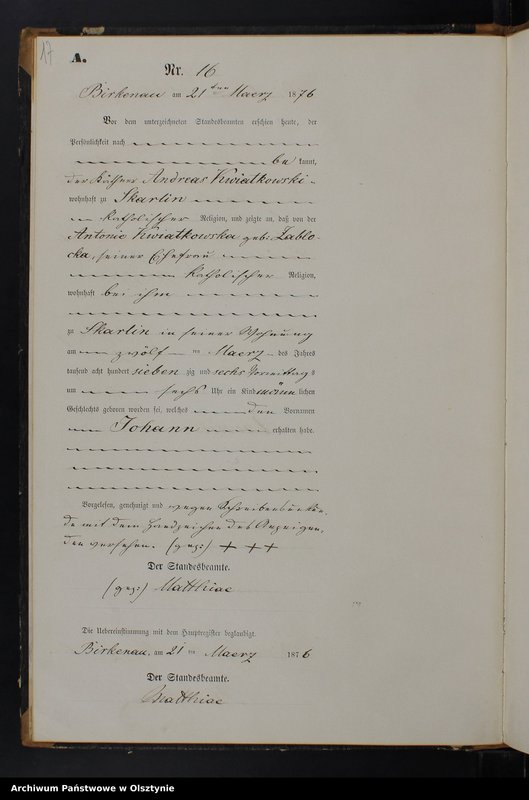 17
A.
Nr. 16
Birkenau am 21 ten Maerz 1876
Vor dem unterzeichneten Standesbeamten erschien heute, der
Persönlichkeit nach
be kannt,
der Käthner Andreas Kwiatkowski
wohnhaft zu Skarlin
katholischer Religion, und zeigte an, daß von der
Antonie Kwiatkowska geb: Zablo-
cka, seiner Ehefrau
katholischer Religion,
wohnhaft bei ihm
zu Skarlin in seiner Wohnung
am zwölf ten Maerz des Jahres
tausend acht hundert sieben zig und sechs Vormittags
um sechs Uhr ein Kind männ lichen
Geschlechts geboren worden sei, welches den Vornamen
Johann erhalten habe.
Vorgelesen, genehmigt und wegen Schreibensunkun-
de mit dem Handzeichen des Anzeigen-
den versehen. (gez:) + + +
Der Standesbeamte.
(gez:) Matthiae
Die Uebereinstimmung mit dem Hauptregister beglaubigt.
Birkenau, am 21 ten Maerz 1876
Der Standesbeamte.
Matthiae
Archiwum Państwowe w Olsztynie